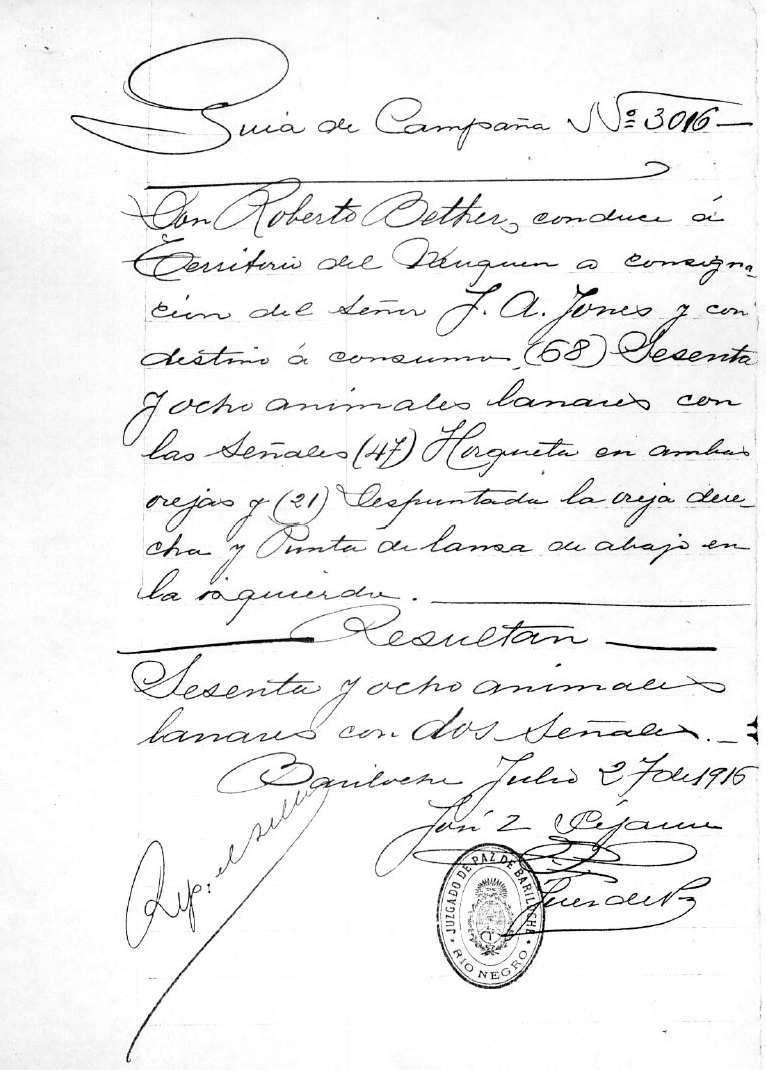 Guia de Campaña Nº 3016
Don Roberto Bether, conduce á
Territorio del Neuquen a consigna-
cion del señor J. A. Jones y con
destino á consumo (68) Sesenta
y ocho animales lanares con
las señales (47) Horqueta en ambas
orejas y (21) Despuntada la oreja dere-
cha y Punta de lanza de abajo en
la izquierda.
Resultan
Sesenta y ocho animales
lanares con dos señales.
Bariloche Julio 27 de 1916
José Z
Juez de Paz
Rep: el sello
JUZGADO DE PAZ DE BARILOCHE
RIO NEGRO